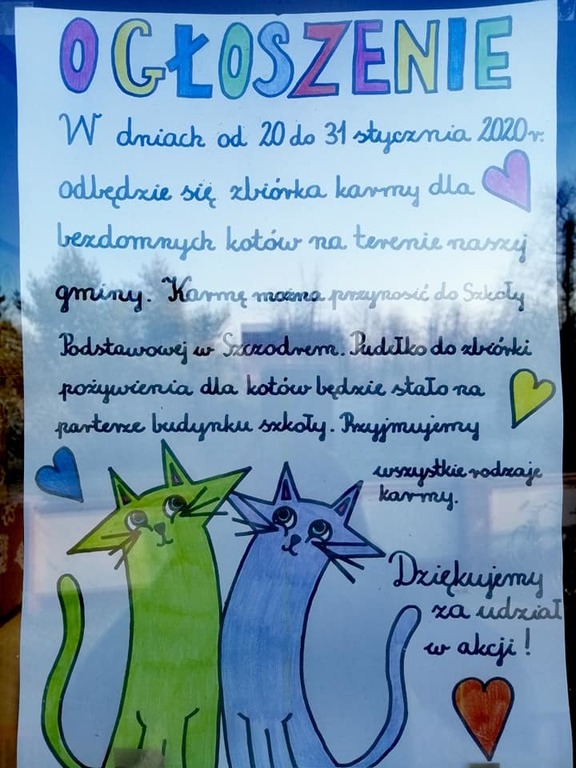 OGŁOSZENIE
W dniach od 20 do 31 stycznia 2020 r.
odbędzie się zbiórka karmy dla
bezdomnych kotów na terenie naszej
gminy. Karmę można przynosić do Szkoły
Podstawowej w Szczodrem. Pudełko do zbiórki
pożywienia dla kotów będzie stało na
parterze budynku szkoły. Przyjmujemy
wszystkie rodzaje
karmy.
Dziękujemy
za udział
w akcji!